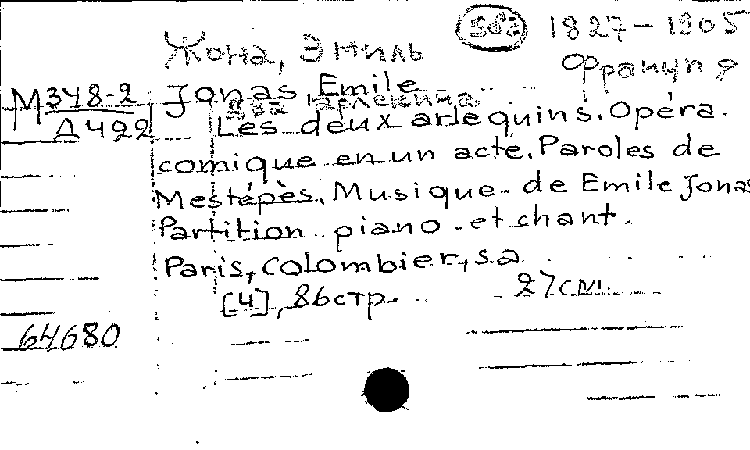 Жона, Эмиль 582 1827-1905
Франция
М 348-2 Jonas Emile
Д 422 два арлекина
Les deux arlequins. Opéra.
comique en un acte. Paroles de
Mestépès. Musique de Emile Jonas
Partition piano et chant.
Paris, Colombier, s.a
[4], 86 стр. 27 см.
64680